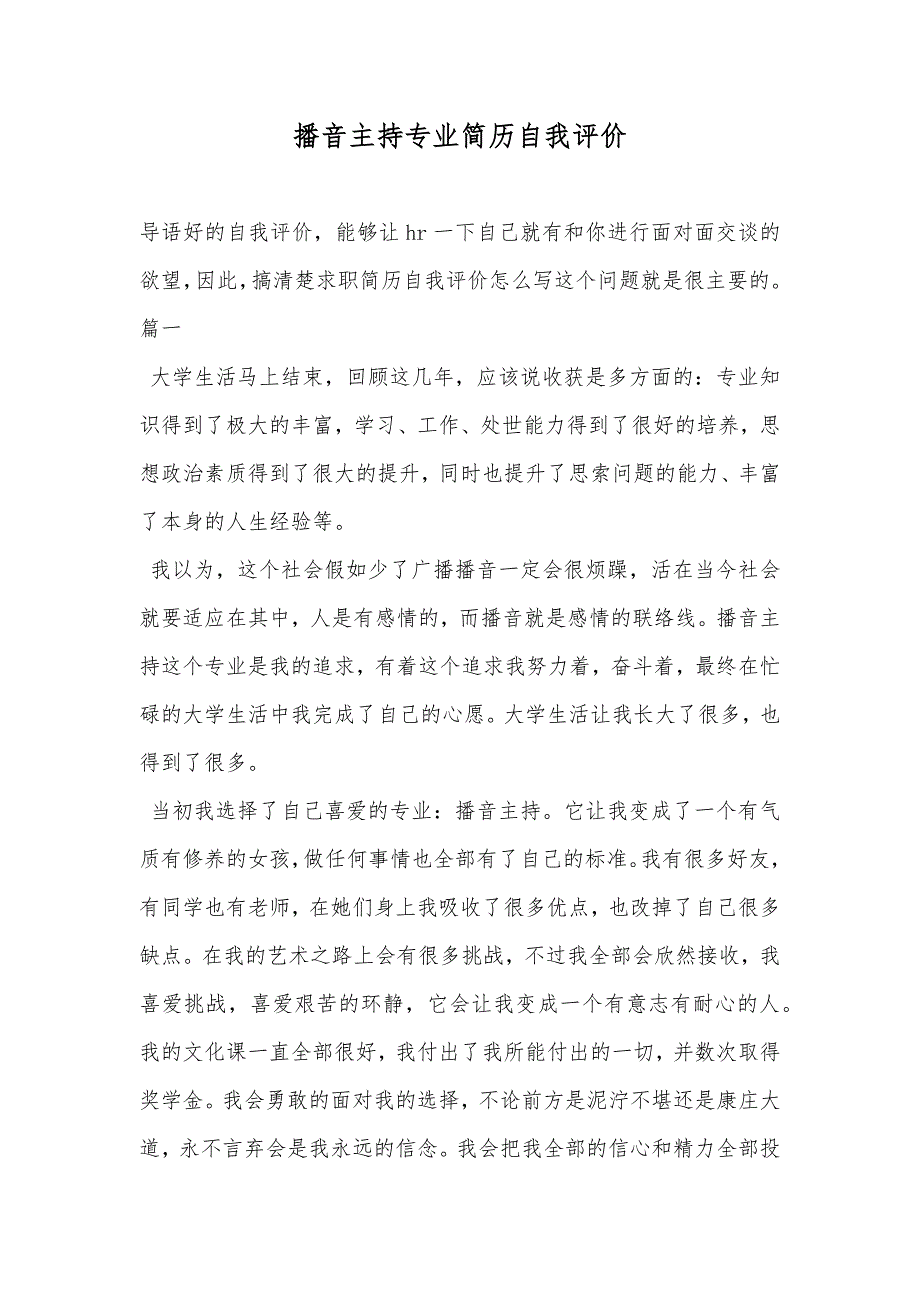 播音主持专业简历自我评价
导语好的自我评价，能够让 hr 一下自己就有和你进行面对面交谈的
欲望，因此，搞清楚求职简历自我评价怎么写这个问题就是很主要的。
篇一
大学生活马上结束，回顾这几年，应该说收获是多方面的：专业知
识得到了极大的丰富，学习、工作、处世能力得到了很好的培养，思
想政治素质得到了很大的提升，同时也提升了思索问题的能力、丰富
了本身的人生经验等。
我以为，这个社会假如少了广播播音一定会很烦躁，活在当今社会
就要适应在其中，人是有感情的，而播音就是感情的联络线。播音主
持这个专业是我的追求，有着这个追求我努力着，奋斗着，最终在忙
碌的大学生活中我完成了自己的心愿。大学生活让我长大了很多，也
得到了很多。
当初我选择了自己喜爱的专业：播音主持。它让我变成了一个有气
质有修养的女孩，做任何事情也全部有了自己的标准。我有很多好友，
有同学也有老师，在她们身上我吸收了很多优点，也改掉了自己很多
缺点。在我的艺术之路上会有很多挑战，不过我全部会欣然接收，我
喜爱挑战，喜爱艰苦的环静，它会让我变成一个有意志有耐心的人。
我的文化课一直全部很好，我付出了我所能付出的一切，并数次取得
奖学金。我会勇敢的面对我的选择，不论前方是泥泞不堪还是康庄大
道，永不言弃会是我永远的信念。我会把我全部的信心和精力全部投